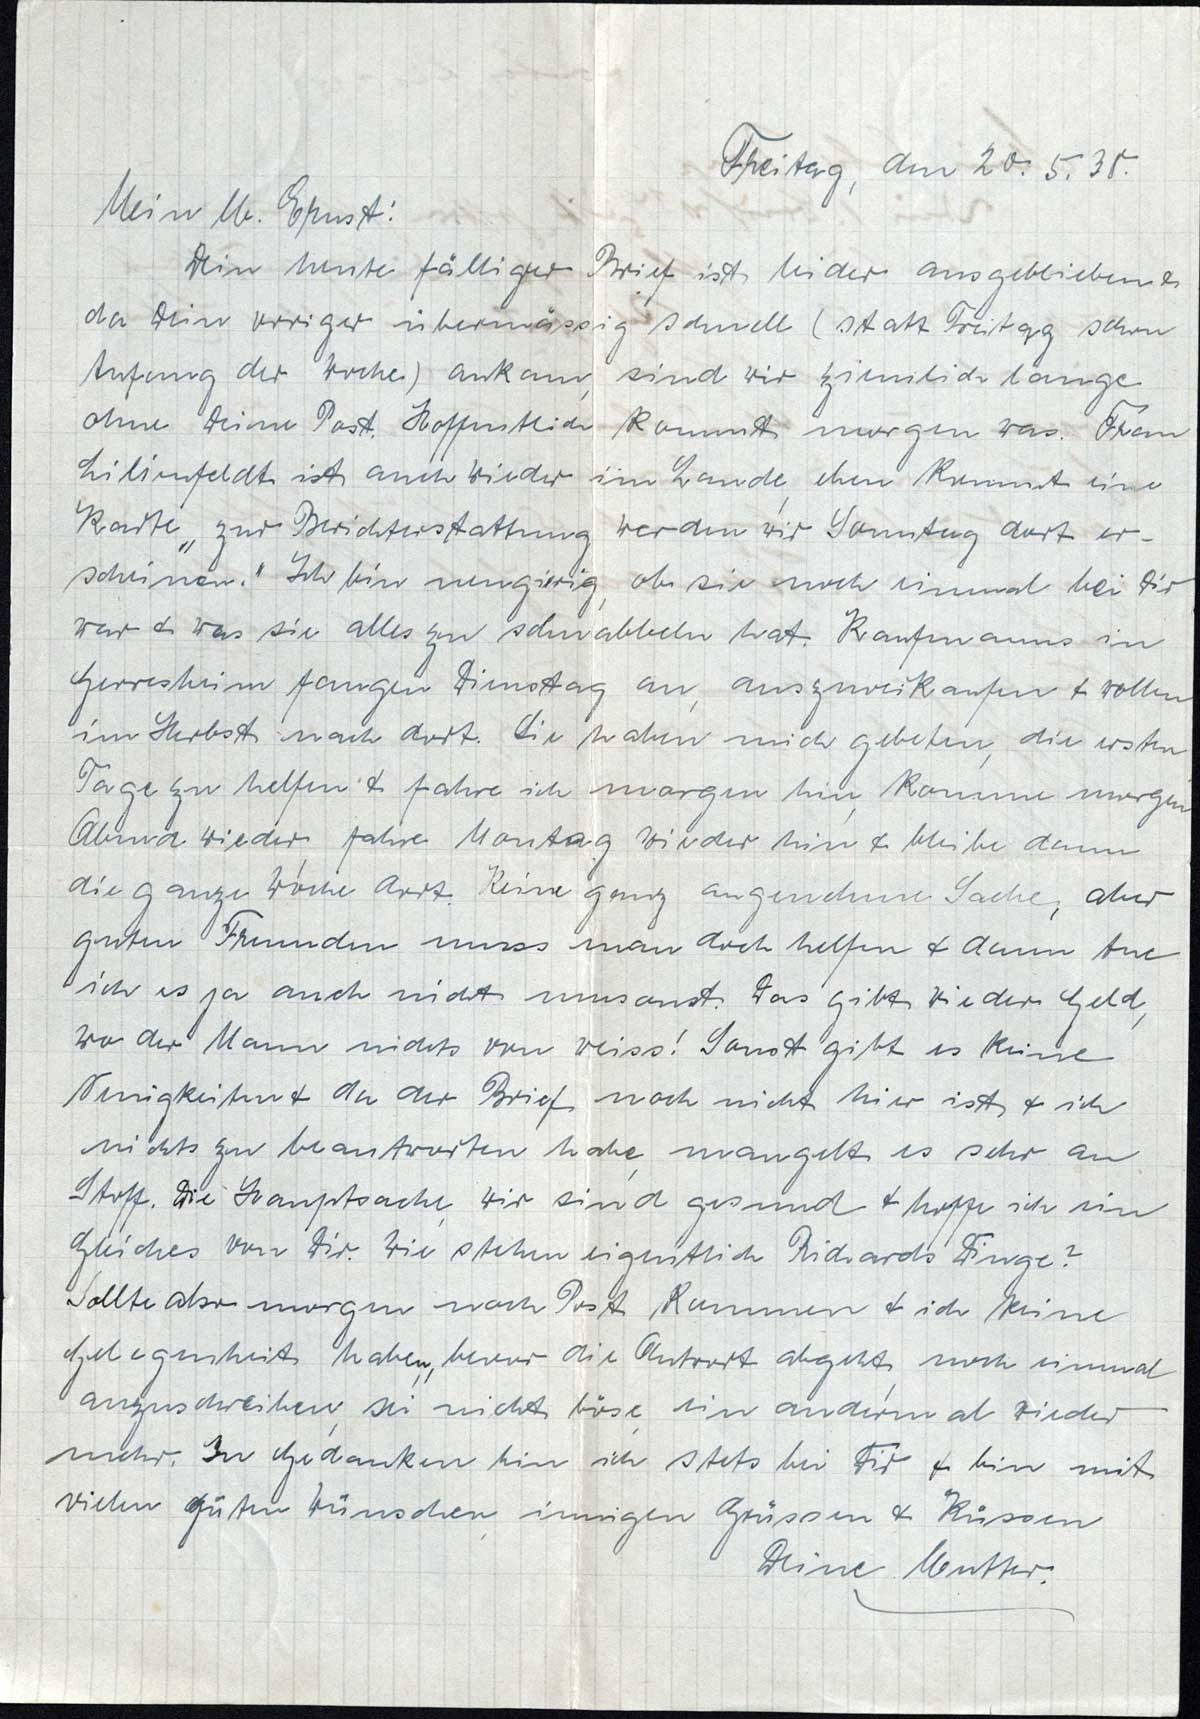 Freitag, den 20. 5. 38.
Mein lb. Ernst!
Dein heute fälliger Brief ist leider ausgeblieben &
da Dein voriger übermässig schnell (statt Freitag schon
Anfang der Woche) ankam, sind wir ziemlich lange
ohne Deine Post. Hoffentlich kommt morgen was. Frau
Lilienfeldt ist auch wieder im Lande, eben kommt eine
Karte „zur Berichterstattung werden wir Sonntag dort er-
scheinen." Ich bin neugierig, ob sie noch einmal bei Dir
war & was sie alles zu schwabbeln hat. Kaufmanns in
Gerresheim fangen Dienstag an, auszuverkaufen & wollen
im Herbst nach dort. Sie haben mich gebeten, die ersten
Tage zu helfen & fahre ich morgen hin, komme morgen
Abend wieder, fahre Montag wieder hin & bleibe dann
die ganze Woche dort. Keine ganz angenehme Sache, aber
guten Freunden muss man doch helfen & dann tue
ich es ja auch nicht umsonst. Das gibt wieder Geld,
wo der Mann nichts von weiss! Sonst gibt es keine
Neuigkeiten & da der Brief noch nicht hier ist & ich
nichts zu beantworten habe, mangelt es sehr an
Stoff. Die Hauptsache, wir sind gesund & hoffe ich ein
Gleiches von Dir. Wie stehen eigentlich Richards Dinge?
Sollte also morgen noch Post kommen & ich keine
Gelegenheit haben, bevor die Antwort abgeht, noch einmal
anzuschreiben, sei nicht böse, ein andermal wieder
mehr. In Gedanken bin ich stets bei Dir & bin mit
vielen guten Wünschen, innigen Grüssen & Küssen
Deine Mutter.